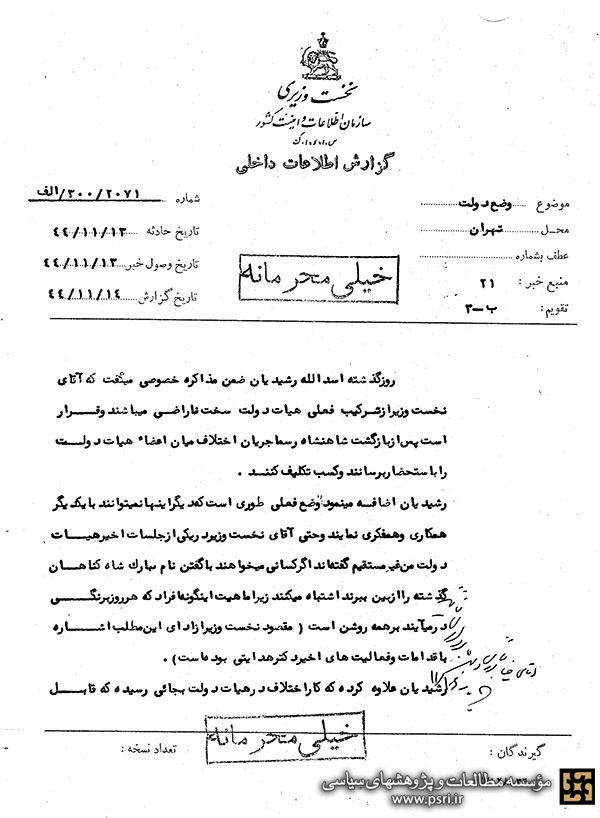 نخست وزیری
سازمان اطلاعات و امنیت کشور
س.ا.و.ا.ک
گزارش اطلاعات داخلی
موضوع وضع دولت
محل تهران
عطف بشماره
منبع خبر : ۲۱
تقویم : ب-۳
شماره ۳۰۰/۲۰۷۱/الف
تاریخ حادثه ۴۴/۱۱/۱۳
تاریخ وصول خبر ۴۴/۱۱/۱۳
تاریخ گزارش ۴۴/۱۱/۱۴
خیلی محرمانه
روزگذشته اسدالله رشیدیان ضمن مذاکره خصوصی میگفت که آقای
نخست وزیر از ترکیب فعلی هیات دولت سخت ناراضی میباشند و قرار
است پس از بازگشت شاهنشاه رسما جریان اختلاف میان اعضاء هیات دولت
را باستحضار برسانند وکسب تکلیف کنند .
رشیدیان اضافه مینمود وضع فعلی طوری است که دیگر اینها نمیتوانند با یکدیگر
همکاری وهمفکری نمایند وحتی آقای نخست وزیر در یکی از جلسات اخیر هیات
دولت من غیر مستقیم گفته اند اگر کسانی میخواهند با گفتن نام مبارك شاه گناهان
گذشته را از بین ببرند اشتباه میکنند زیرا ماهیت اینگونه افراد که هر روز برنگی
در میآیند بر همه روشن است ( مقصود نخست وزیر از ادای این مطلب اشاره
باقدامات وفعالیت های اخیر دکتر هدایتی بوده است) .
رشیدیان علاوه کرده که کار اختلاف در هیات دولت بجائی رسیده که قابل
خیلی محرمانه
گیرندگان :
تعداد نسخه :
مؤسسه مطالعات و پژوهشهای سیاسی
www.psri.ir